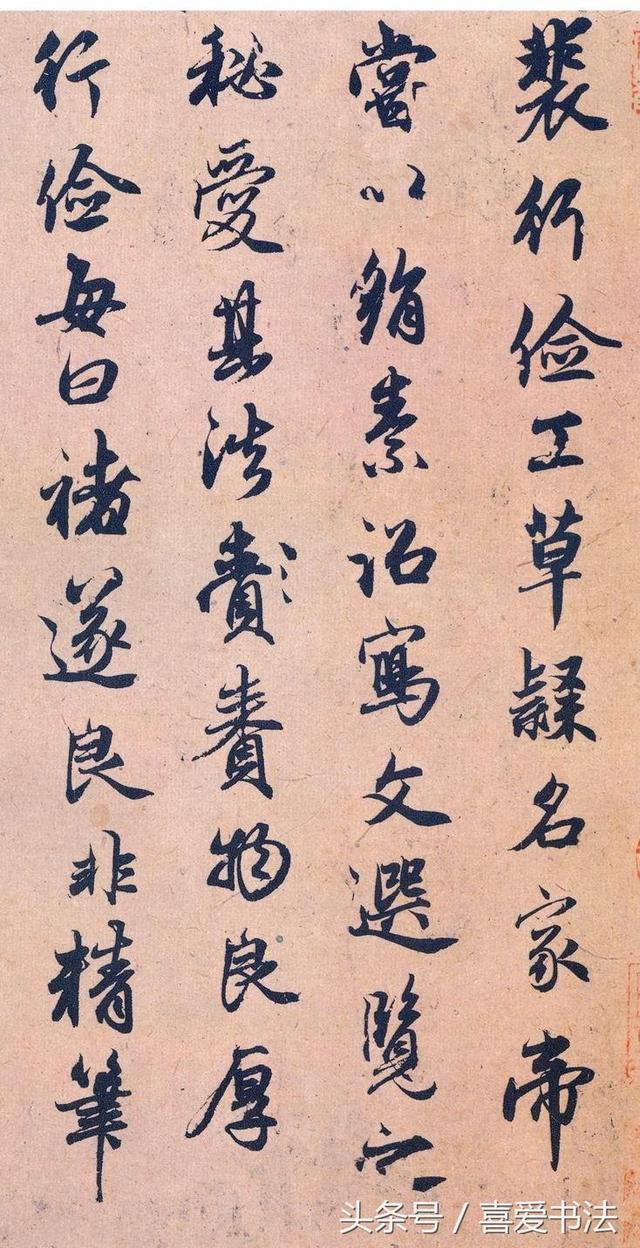 裴行儉工草隸名家帝
嘗以絹素詔寫文選覽之
秘愛其法賚物良厚
行儉每曰褚遂良非精筆
头条号 / 喜爱书法